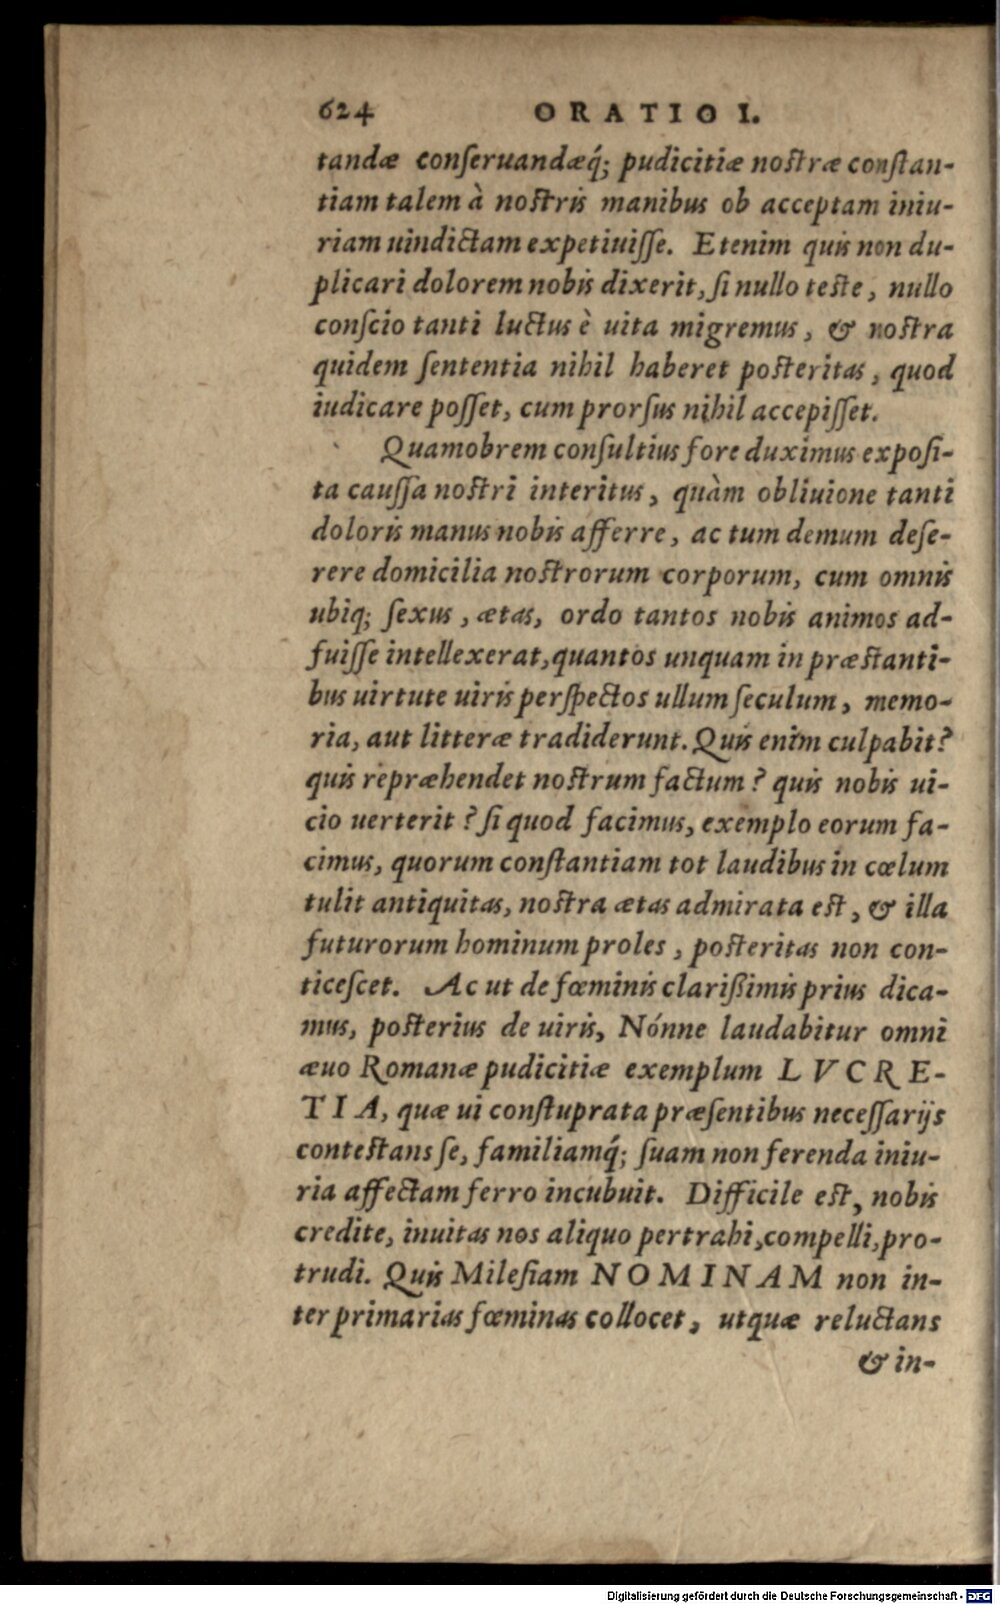 624 ORATIO I.
tandæ conſeruandæq́; pudicitiæ noſtræ conſtan-
tiam talem à noſtris manibus ob acceptam iniu-
riam uindictam expetiuiſſe. Etenim quis non du-
plicari dolorem nobis dixerit, ſi nullo teſte, nullo
conſcio tanti luctus è uita migremus, & noſtra
quidem ſententia nihil haberet poſteritas, quod
iudicare poſſet, cum prorſus nihil accepiſſet.
Quamobrem conſultius fore duximus expoſi-
ta cauſſa noſtri interitus, quàm obliuione tanti
doloris manus nobis afferre, ac tum demum deſe-
rere domicilia noſtrorum corporum, cum omnis
ubiq; ſexus, ætas, ordo tantos nobis animos ad-
fuiſſe intellexerat, quantos unquam in præſtanti-
bus uirtute uiris perſpectos ullum ſeculum, memo-
ria, aut litteræ tradiderunt. Quis enim culpabit?
quis repræhendet noſtrum factum? quis nobis ui-
cio uerterit? ſi quod facimus, exemplo eorum fa-
cimus, quorum conſtantiam tot laudibus in cœlum
tulit antiquitas, noſtra ætas admirata eſt, & illa
futurorum hominum proles, poſteritas non con-
ticeſcet. Ac ut de fœminis clarißimis prius dica-
mus, poſterius de uiris, Nónne laudabitur omni
æuo Romanæ pudicitiæ exemplum LVCRE-
TIA, quæ ui conſtuprata præſentibus neceſſarijs
conteſtans ſe, familiamq́; ſuam non ferenda iniu-
ria affectam ferro incubuit. Difficile eſt, nobis
credite, inuitas nos aliquo pertrahi, compelli, pro-
trudi. Quis Mileſiam NOMINAM non in-
ter primarias fœminas collocet, utquæ reluctans
& in-
Digitalisierung gefördert durch die Deutsche Forschungsgemeinschaft - DFG